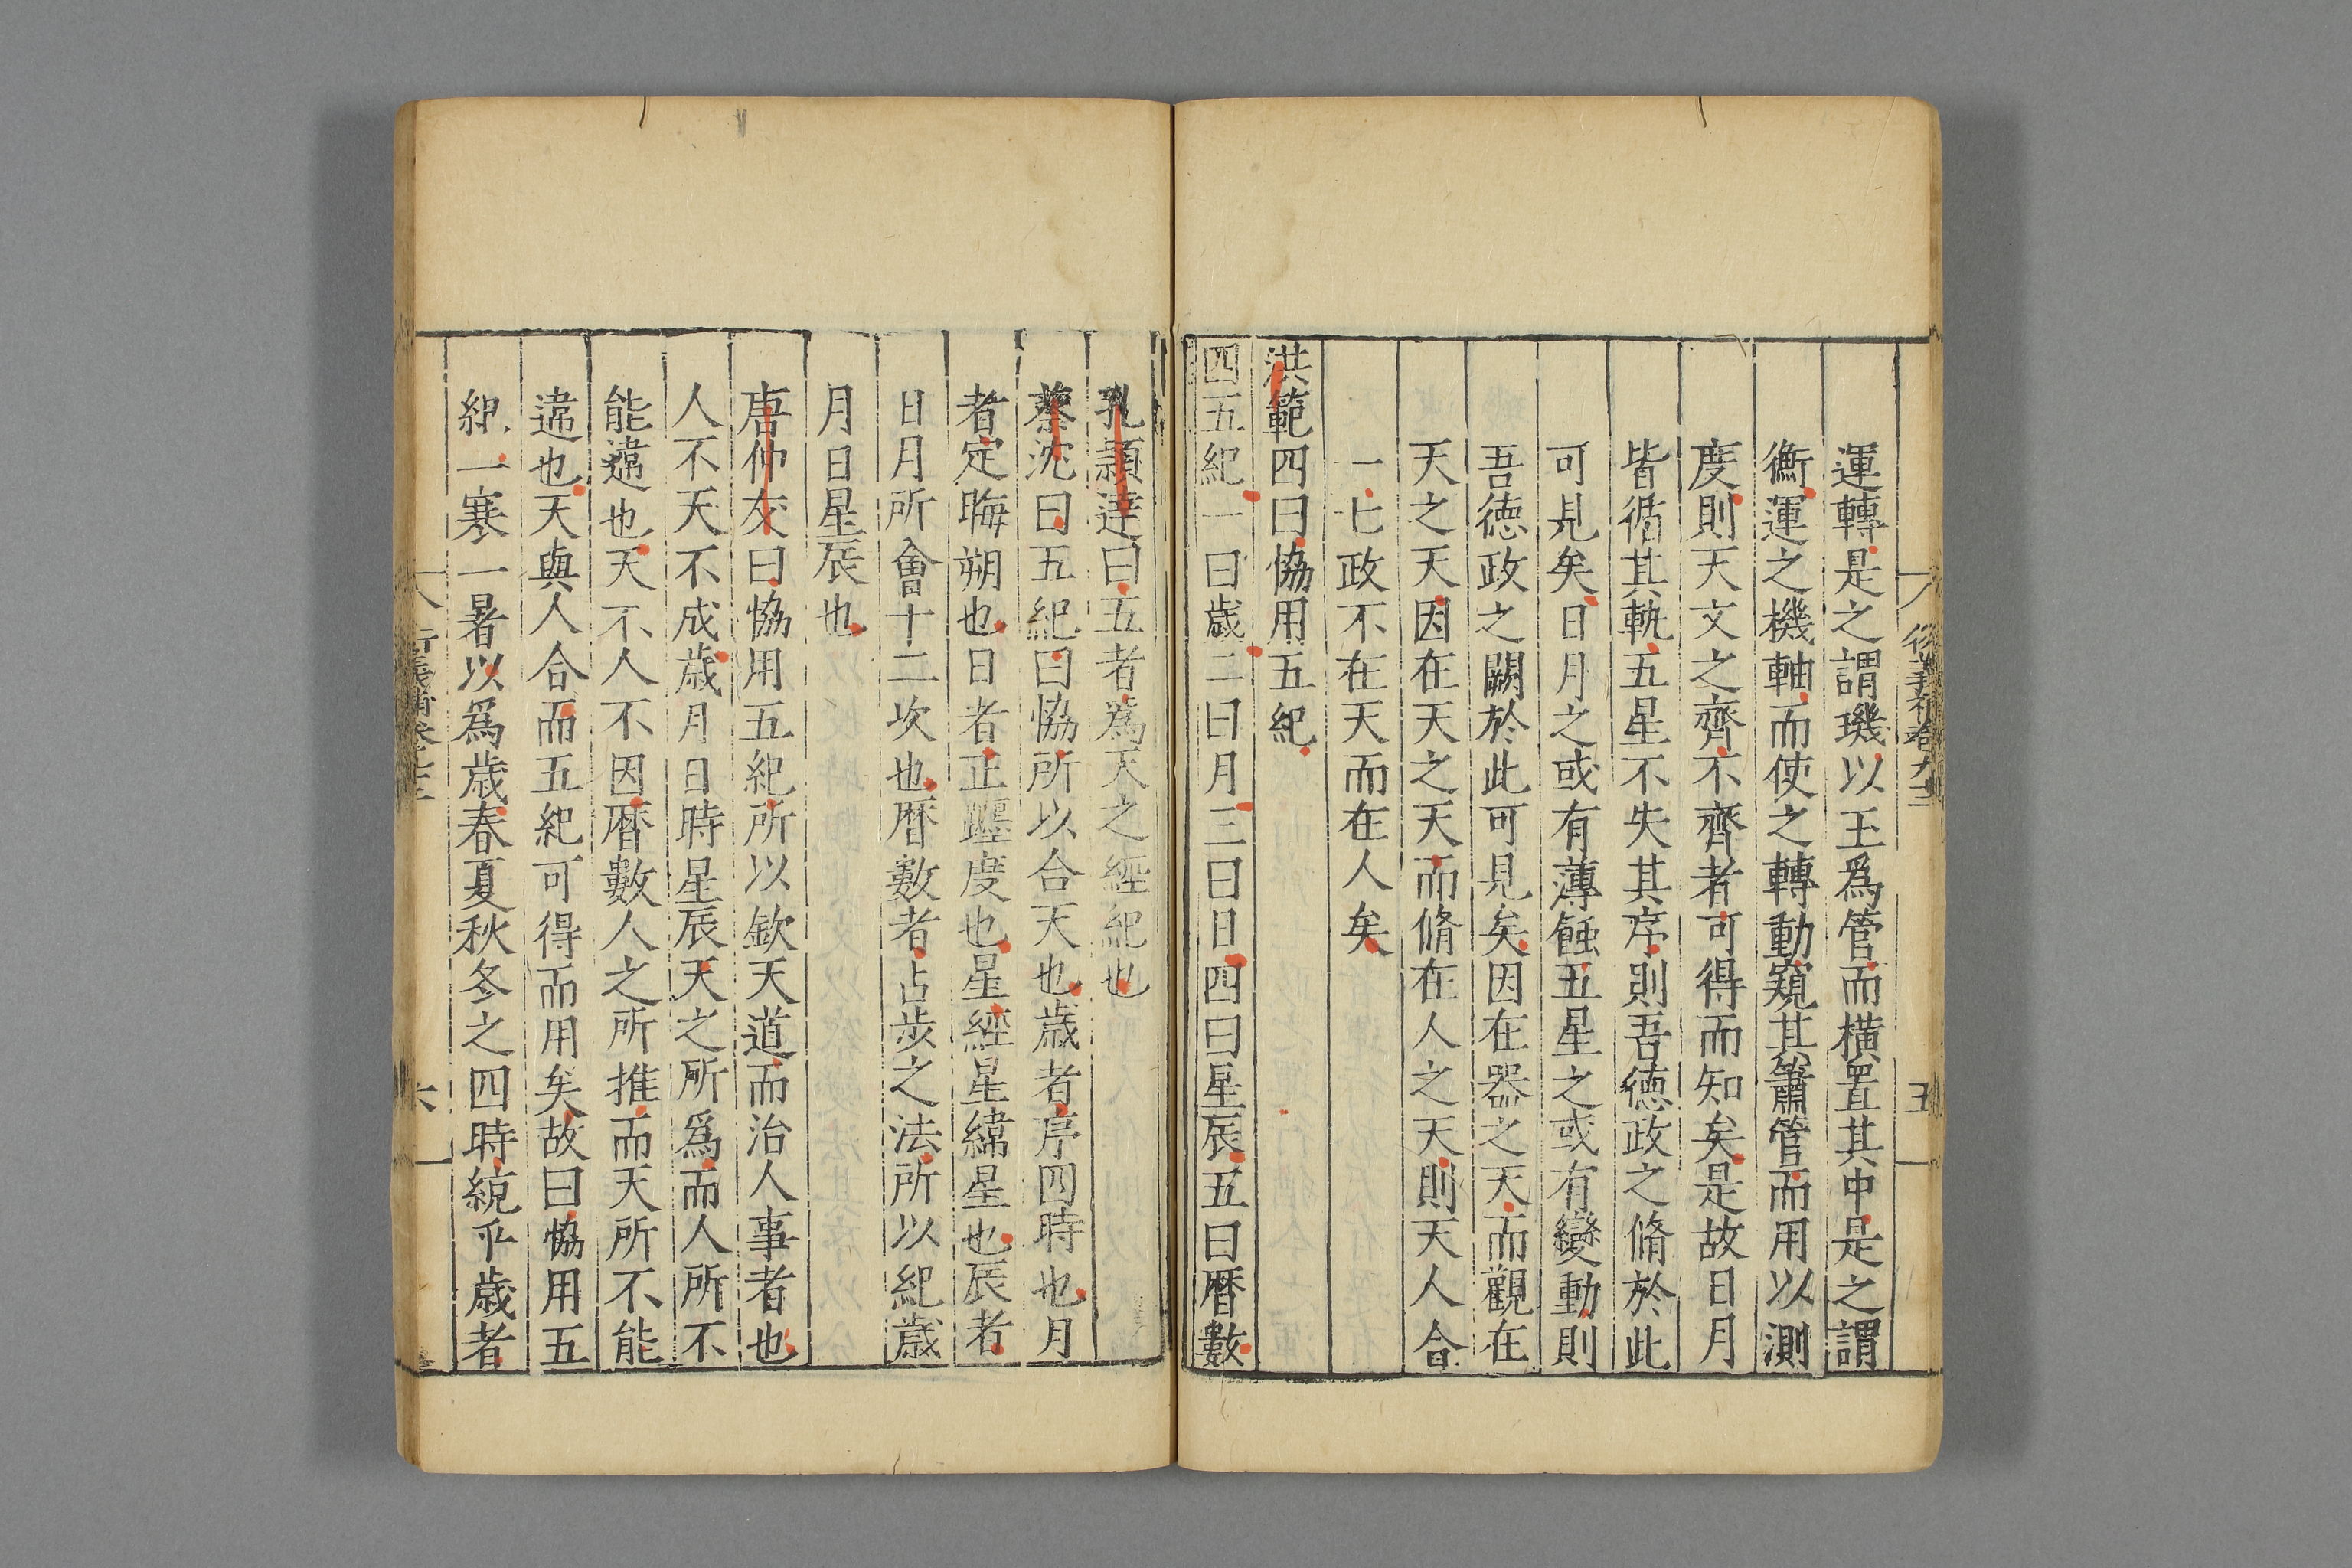 運轉是之謂璣以玉爲管而橫置其中是之謂
衡運之機軸而使之轉動窺其簫管而用以測
度則天文之齊不齊者可得而知矣是故日月
皆循其軌五星不失其序則吾德政之脩於此
可見矣日月之或有薄蝕五星之或有變動則
吾德政之闕於此可見矣因在器之天而觀在
天之天因在天之天而脩在人之天則天人合
一七政不在天而在人矣
洪範四曰恊用五紀
四五紀一曰歲二曰月三曰日四曰星辰五曰曆數
孔穎達曰五者爲天之經紀也
蔡沈曰五紀曰恊所以合天也歲者序四時也月
者定晦朔也日者正躔度也星經星緯星也辰者
日月所會十二次也曆數者占步之法所以紀歲
月日星辰也
唐仲友曰恊用五紀所以欽天道而治人事者也
人不天不成歲月日時星辰天之所爲而人所不
能違也天不人不因曆數人之所推而天所不能
違也天與人合而五紀可得而用矣故曰恊用五
紀一寒一暑以爲歲春夏秋冬之四時統乎歲者
六